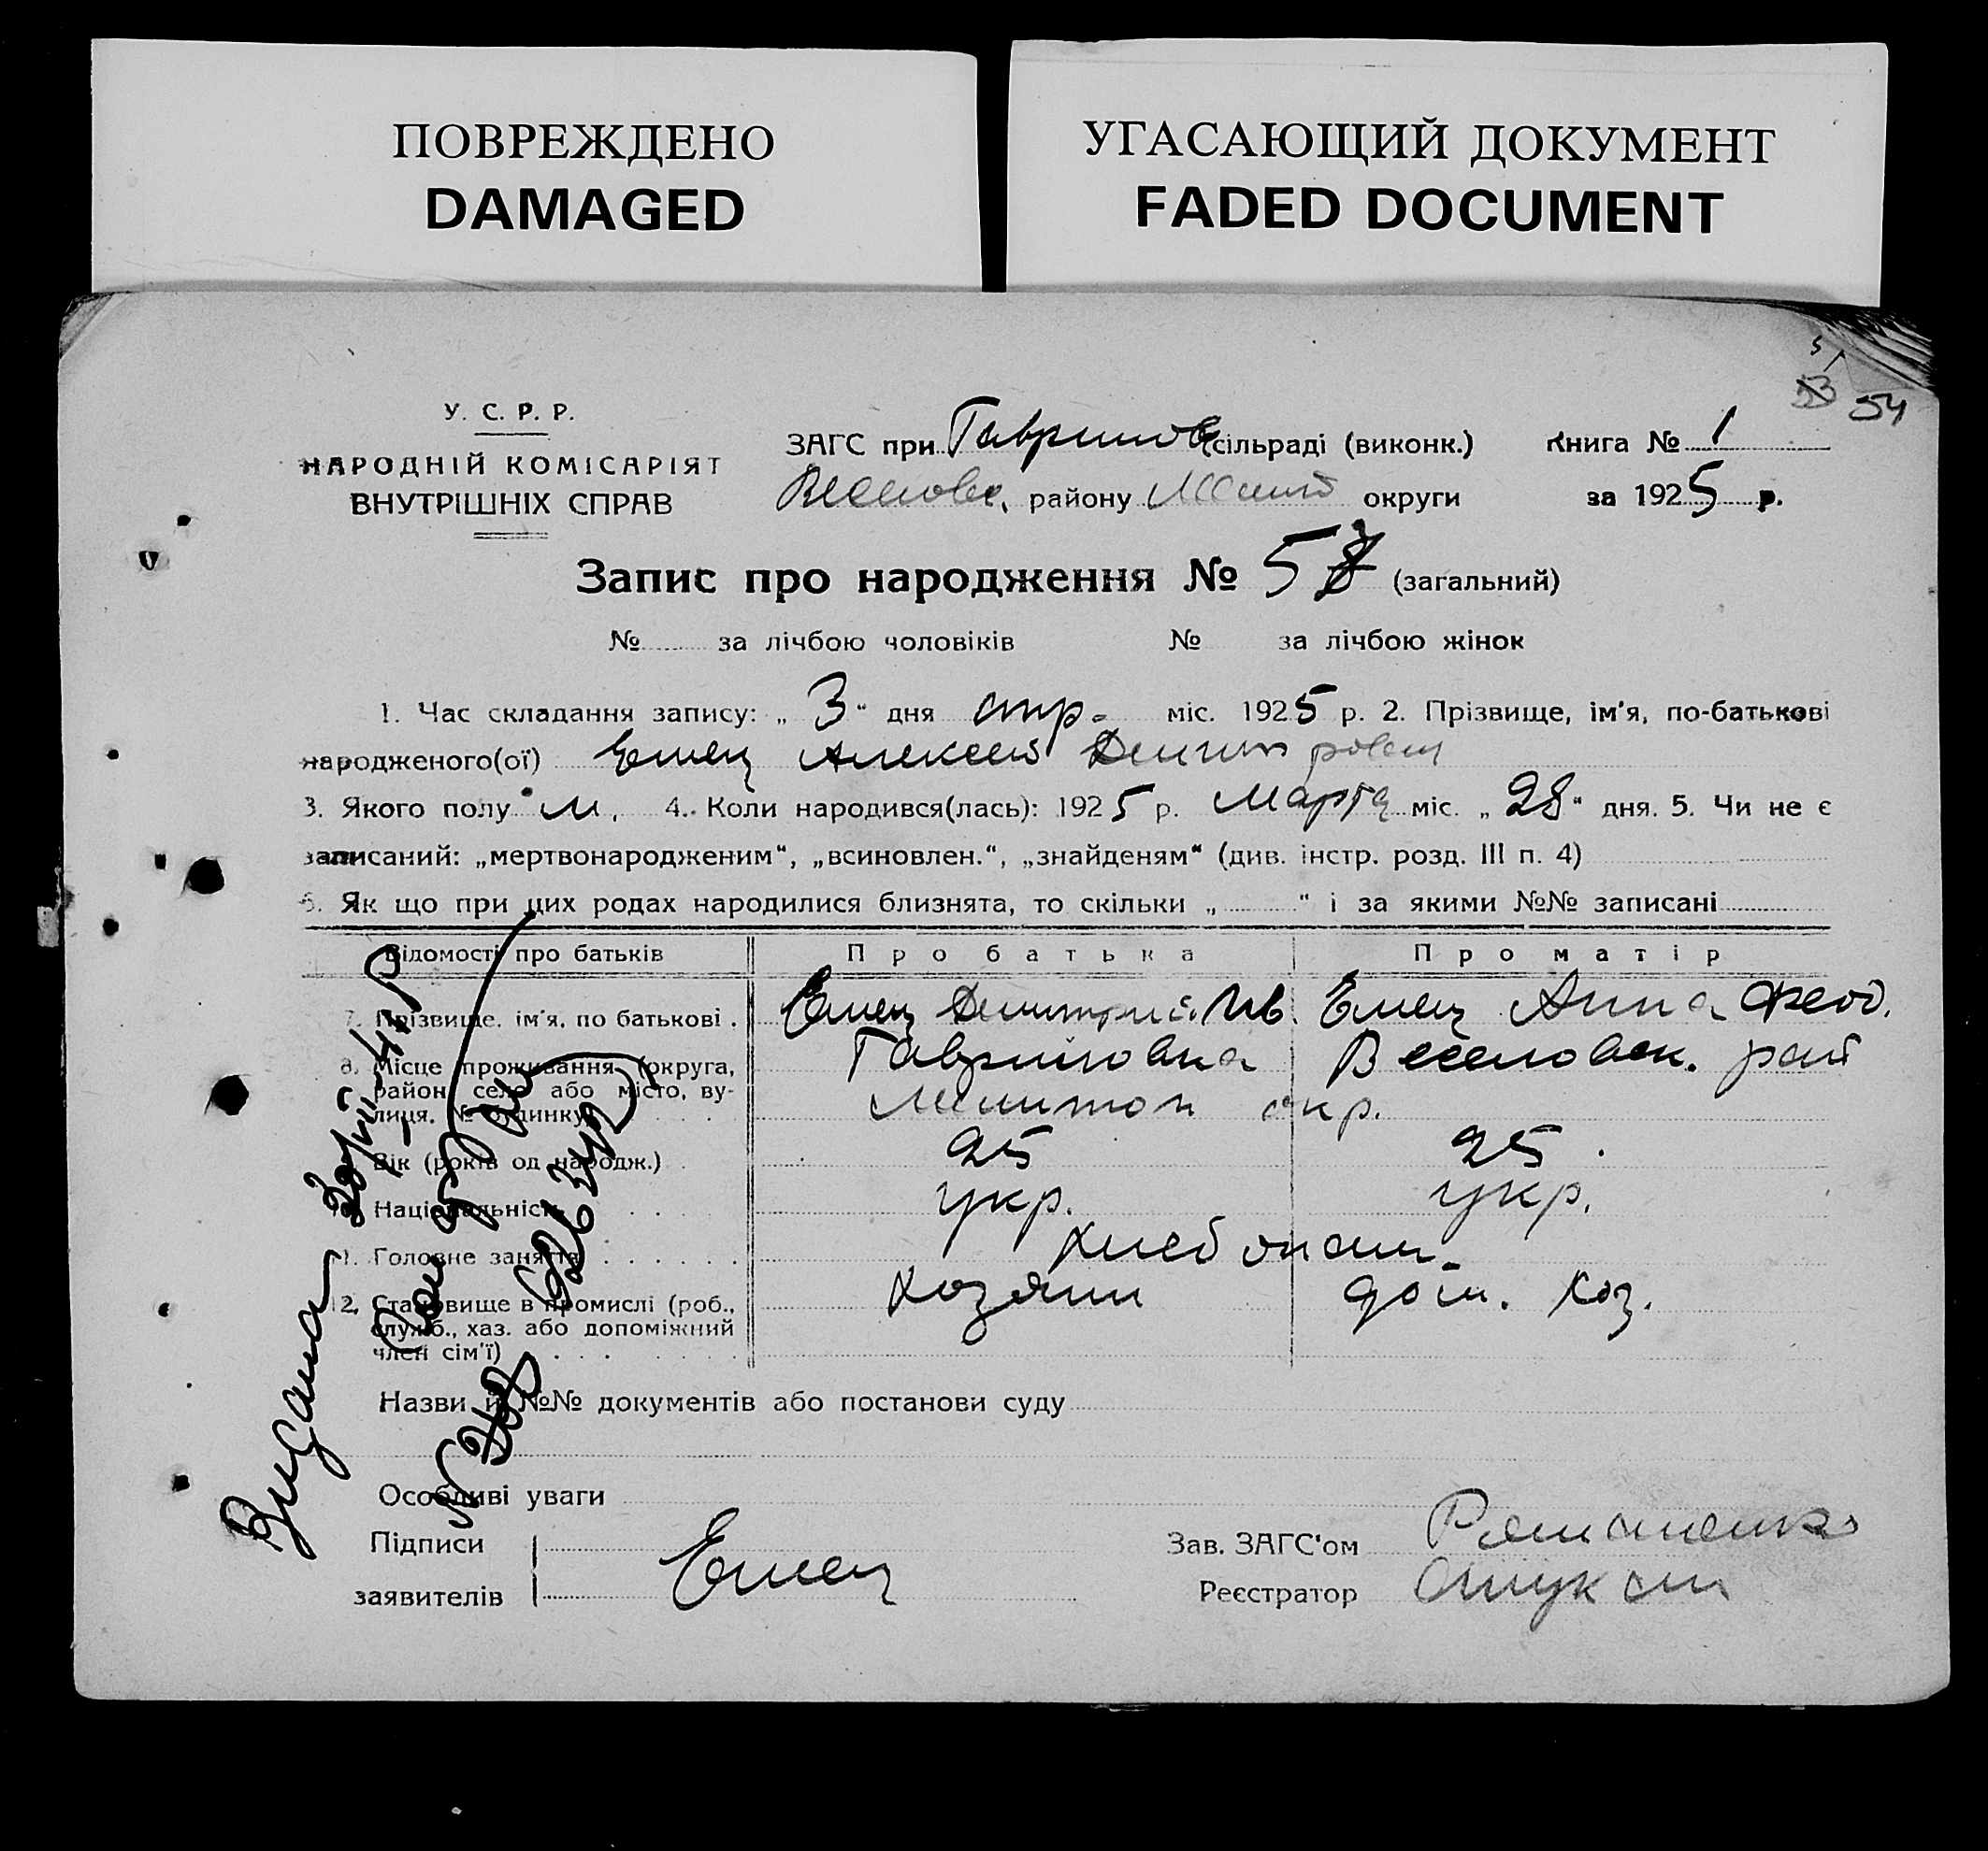 ПОВРЕЖДЕНО
DAMAGED
УГАСАЮЩИЙ ДОКУМЕНТ
FADED DOCUMENT
54
У. С. Р. Р.
НАРОДНІЙ КОМІСАРІЯТ
ВНУТРІШНІХ СПРАВ
ЗАГС при Гавришов сільраді (виконк.) Книга № 1
району округи за 1925 р.
Запис про народження № 57 (загальний)
№ за лічбою чоловіків № за лічбою жінок
1. Час складання запису: „ 3 “ дня апр. міс. 1925 р. 2. Прізвище, ім'я, по-батькові
народженого(ої) Емец Алексей
3. Якого полу м. 4. Коли народився(лась): 1925 р. Марта міс. „ 28 “ дня. 5. Чи не є
записаний: „мертвонародженим“, „всиновлен.“, „знайденям“ (див. інстр. розд. III п. 4)
6. Як що при цих родах народилися близнята, то скільки „ “ і за якими №№ записані
Відомості про батьків Про батька Про матір
7. Прізвище. ім'я, по батькові . Емец Дмитрий Ив. Емец Анна Феод.
8. Місце проживання (округа, Гавришовка Веселовск. рай
район, село або місто, ву-
лиця, № будинку) Мелитоп окр.
Вік (років од народж.) . 25 25 .
Національність укр. укр.
11. Головне заняття . . . . . . Хлебопаш.
12. Становище в промислі (роб., хозяин дом. хоз.
служб., хаз. або допоміжний
член сім'ї) . . . .
Назви й №№ документів або постанови суду
Особливі уваги
Підписи
заявителів Емец
Зав. ЗАГС'ом
Реєстратор
Видана